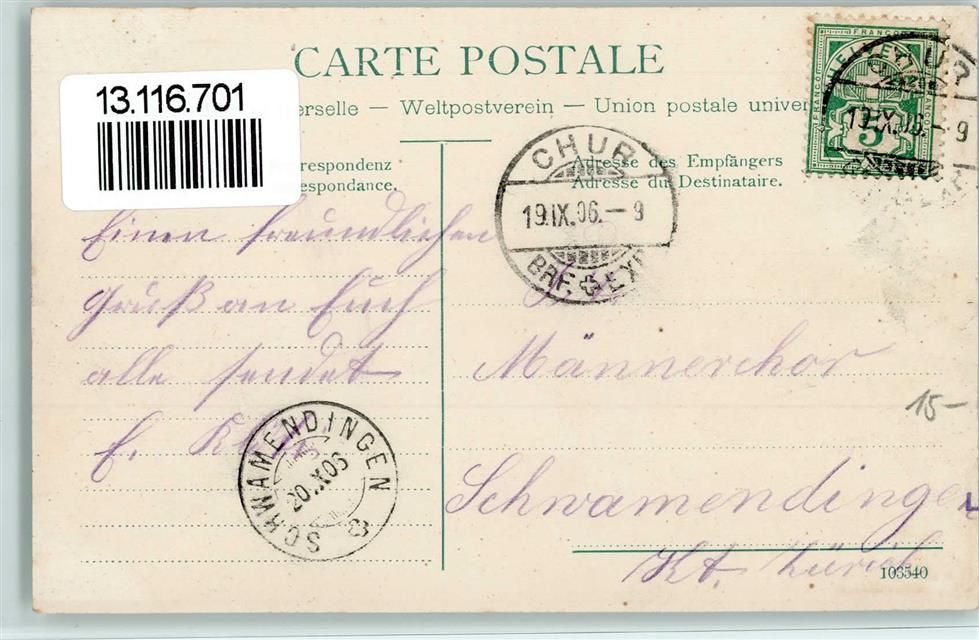 CARTE POSTALE
13.116.701
erselle — Weltpostverein — Union postale univer
respondenz
espondance.
Adresse des Empfängers
Adresse du Destinataire.
FRANCO
HELVETIA
FRANCO
5
19.IX.06.— 9
CHUR
19.IX.06.— 9
BRF. EXP
Einen freundlichen
Gruß an Euch
alle sendet
E.
Männerchor
Schwamendingen
Kt. Zürich
15–
SCHWAMENDINGEN
20.X06
103540